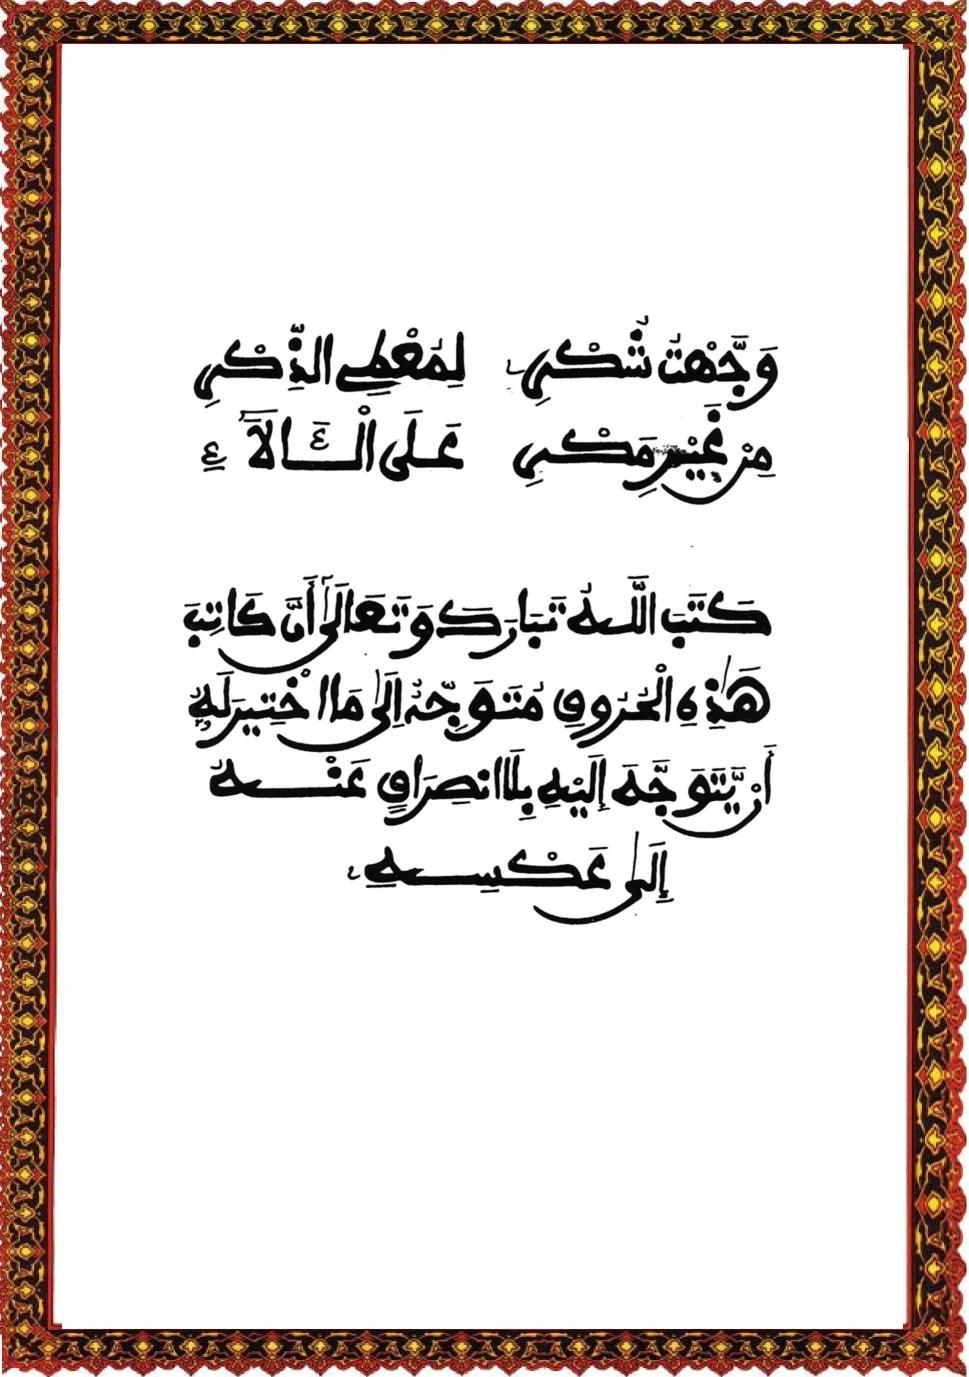 وَجَّهْتُ شُكْرِي لِمُعْطِي الذِّكْرِ
مِنْ غَيْرِ مَكْرِ عَلَى الْـَٔالَآءِ
كَتَبَ اللَّـهُ تَبَارَكَ وَتَعَالَىٰ أَنَّ كَاتِبَ
هَٰذِهِ الْحُرُوفِ مُتَوَجِّهٌ إِلَىٰ مَا اخْتِيرَ لَهُ
أَنْ يَّتَوَجَّهَ إِلَيْهِ بِلَا انصِرَافٍ عَنْـهُ
إِلَىٰ عَكْسِـهِ